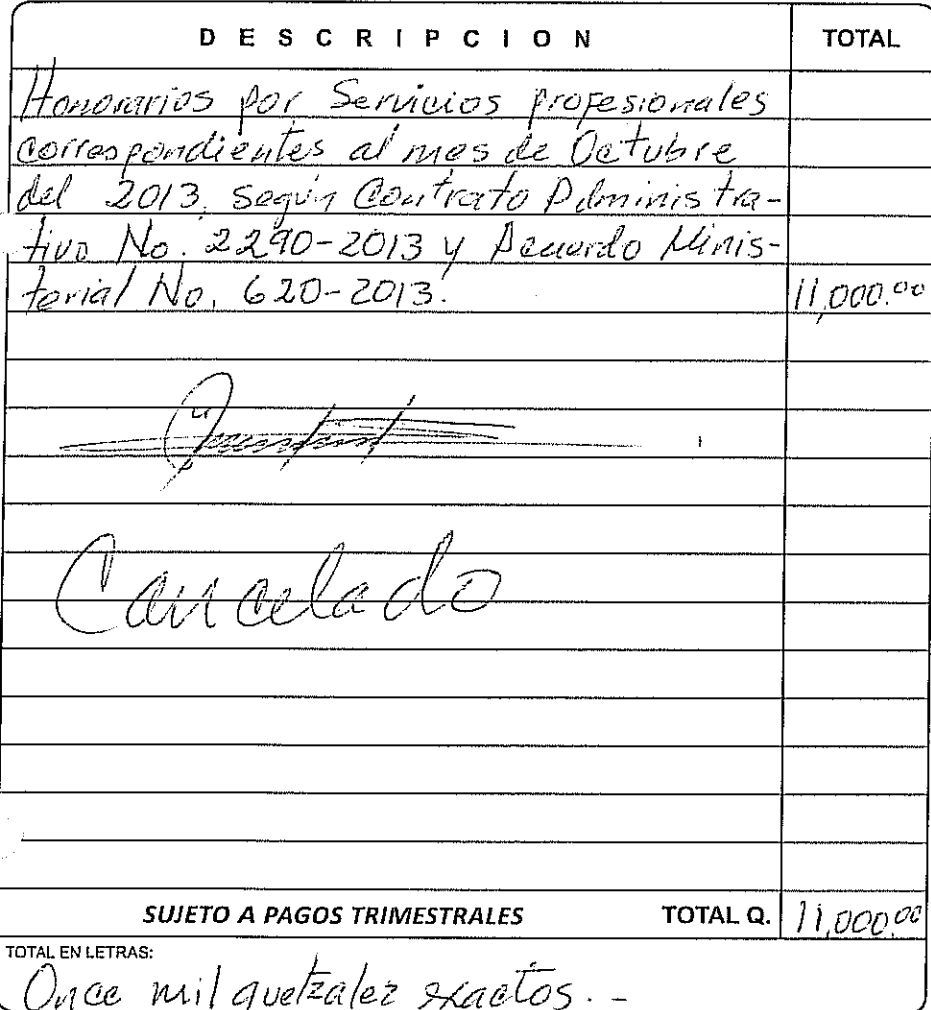 DESCRIPCION TOTAL
Honorarios por Servicios profesionales
correspondientes al mes de Octubre
del 2013, según Contrato Administra-
tivo No. 2290-2013 y Acuerdo Minis-
terial No. 620-2013. 11,000.00
Cancelado
SUJETO A PAGOS TRIMESTRALES TOTAL Q. 11,000.00
TOTAL EN LETRAS:
Once mil quetzales exactos.-